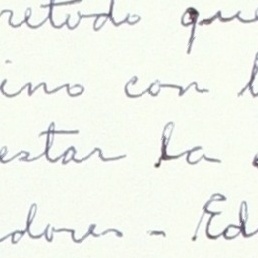 retodo que
ino con l
estar la
dores - Ed